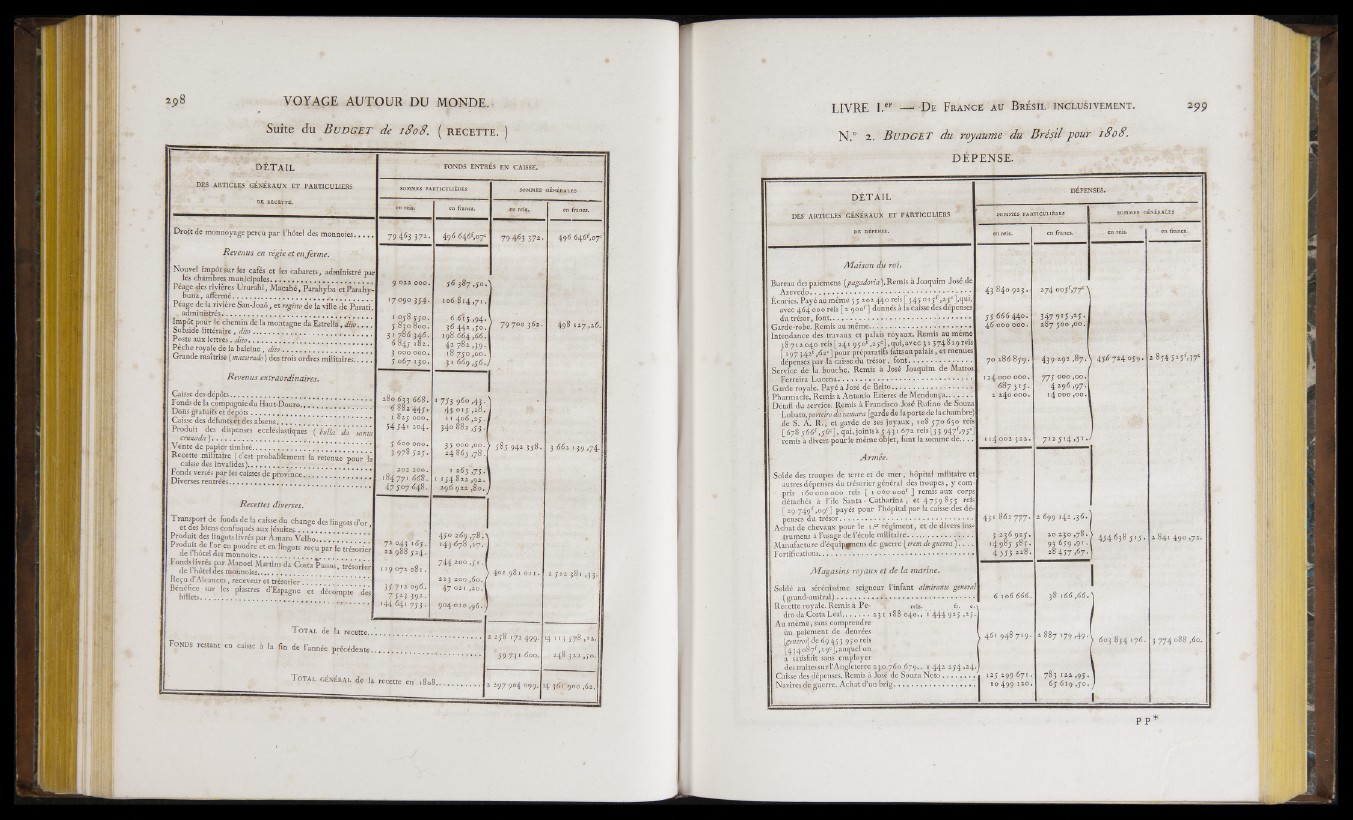 298 VOYAGE AUTOUR DU MONDE.
Suite du BUDGET de 1808. ( RECETTE. )
DÉTAIL
DES ARTICLES GÉNÉRAUX ET PARTICULIERS
DE RECETTE.
FONDS ENTRÉS EN CAISSE.
SOMMES PARTICULIÈRES SOMMES GÉNÉRALES
en reis. en francs. en reis. en francs.
Droit de monnoyage perçu par l'hôtel des monnoies..... 79 463 372. 496 646f,07c 79 463 372. 496 646f,07c
Revenus en régie et en ferme.
Nouvel impôt sur les cafés et les cabarets, administré par
les chambres municipales... 9 022 000. 56 387,50.
Péage des rivières Ururahi, Macahé, Parahyba et Parahy-
buna, affermé... 17 090 354. 106 814,71.
Péage de la rivière San-Joaõ, et registro de la ville de Parati,
administrés... 1 058 550. 6 615,94.
Impôt pour le chemin de la montagne da Estrella, dito.... 5 830 800. 36 442,50.
Subside littéraire, dito... 31 786 346. 198 664,66.
Poste aux lettres, dito... 6 845 182. 42 782,39.
Pêche royale de la baleine, dito... 3 000 000. 18 750,00.
Grande maîtrise (mestrado) des trois ordres militaires... 5 067 130. 31 669,56.
79 700 362. 498 127,26.
Revenus extraordinaires.
Caisse des dépôts... 280 633 668. 1 753 960,43.
Fonds de la compagnie du Haut-Douro... 6 882 445. 43 015,28.
Dons gratuits et dépôts... 1 825 000. 11 406,25.
Caisse des défunts et des absens... 54 541 204. 340 882,53.
Produit des dispenses ecclésiastiques (bulla da santa
cruzada)... 5 600 000. 35 000,00.
Vente de papier timbré... 3 978 525. 24 865,78.
Recette militaire [c'est probablement la retenue pour la
caisse des invalides]... 202 200. 1 263,75.
Fonds versés par les caisses de province... 184 771 668. 1 154 822,92.
Diverses rentrées... 47 507 648. 296 922,80.
585 942 358. 3 662 139,74.
Recettes diverses.
Transport de fonds de la caisse du change des lingots d'or,
et des biens confisqués aux jésuites... 72 043 165. 450 269,78.
Produit des lingots livrés par Amaro Velho... 22 988 524. 143 678,27.
Produit de l'or en poudre et en lingots reçu par le trésorier
de l'hôtel des monnoies... 119 072 081. 744 200,51.
Fonds livrés par Manoel Martim da Costa Passos, trésorier
de l'hôtel des monnoies... 35 712 096. 223 200,60.
Reçu d'Alcances, receveur et trésorier... 7 523 392. 47 021,20.
Bénéfice sur les piastres d'Espagne et décompte des
billets... 144 641 753. 904 010,96.
401 981 011. 2 522 381,33.
TOTAL de la recette... 2 258 172 499. 14 113 578,12.
FONDS restant en caisse à la fin de l'année précédente... 39 731 600. 248 322,50.
TOTAL GÉNÉRAL de la recette en 1808... 2 297 904 099. 14 361 900,62.
LIVRE I.er — DE FRANCE AU BRÉSIL INCLUSIVEMENT. 299
N.° 2. BUDGET du royaume du Brésil pour 1808.
DÉPENSE.
DÉTAIL
DES ARTICLES GÉNÉRAUX ET PARTICULIERS
DE DÉPENSE.
DÉPENSES.
SOMMES PARTICULIÈRES SOMMES GÉNÉRALES
en reis. en francs. en reis. en francs.
Maison du roi.
Bureau des paiemens [pagadoria]. Remis à Joaquim José de
Azevedo... 43 840 923. 274 005f,77c
Écuries. Payé au même 55 202 440 reis [345 015f,25c], qui,
avec 464 000 reis [2 900f] donnés à la caisse des dépenses
du trésor, font... 55 666 440. 347 915,25.
Garde-robe. Remis au même... 46 000 000. 287 500,00.
Intendance des travaux et palais royaux. Remis au même
38 712 040 reis [241 950f,25c], qui, avec 31 574 819 reis
[197 342f,62c] pour préparatifs faits au palais, et menues
dépenses par la caisse du trésor, font... 70 286 859. 439 292,87.
Service de la bouche. Remis à José Joaquim de Mattos
Ferreira Lucena... 124 000 000. 775 000,00.
Garde royale. Payé à José de Brito... 687 515. 4 296,97.
Pharmacie. Remis à Antonio Etieres de Mendonça... 2 240 000. 14 000,00.
Détail du service. Remis à Francisco José Rufino de Souza
Lobato, porteiro da camara [garde de la porte de la chambre]
de S. A. R., et garde de ses joyaux, 108 570 650 reis
[678 566f,56c], qui, joints à 5 431 672 reis [33 947f,95c],
remis à divers pour le même objet, font la somme de.... 114 002 322. 712 514,51.
456 724 059. 2 854 525f,37c
Armée.
Solde des troupes de terre et de mer, hôpital militaire et
autres dépenses du trésorier général des troupes, y com-
pris 160 000 000 reis [1 000 000f] remis aux corps
détachés à l'île Santa-Catharina, et 4 759 855 reis
[29 749f,09c] payés pour l'hôpital par la caisse des dé-
penses du trésor... 431 862 777. 2 699 142,36.
Achat de chevaux pour le 1.er régiment, et de divers ins-
trumens à l'usage de l'école militaire... 3 236 925. 20 230,78.
Manufacture d'équipemens de guerre (trem de guerra)... 14 985 585. 93 659,91.
Fortifications... 4 553 228. 28 457,67.
454 638 515. 2 841 490,72.
Magasins royaux et de la marine.
Solde au sérénissime seigneur l'infant almirante general
(grand-amiral)... 6 106 666. 38 166,66.
Recette royale. Remis à Pe- reis. fr. c.
dro da Costa Leal... 231 188 040.. 1 444 925,25.
Au même, sans comprendre
un paiement de denrées
[generos] de 69 453 950 reis
[434 087f,19c], auquel on
a satisfait sans employer
des traites sur l'Angleterre 230 760 679.. 1 442 254,24.
461 948 719. 2 887 179,49.
Caisse des dépenses. Remis à José de Souza Neto... 125 299 671. 783 122,95.
Navires de guerre. Achat d'un brig... 10 499 120. 65 619,50.
603 854 176. 3 774 088,60.
PP*